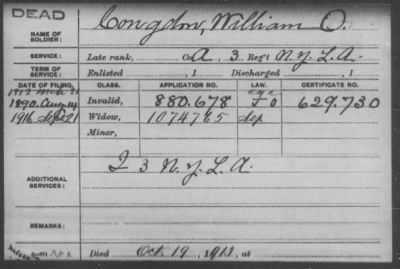 DEAD
NAME OF SOLDIER: Congdon, William O.
SERVICE: Late rank, Co. A, 3 Reg't N.Y.L.A.
TERM OF SERVICE: Enlisted , 1 Discharged , 1
DATE OF FILING. CLASS. APPLICATION NO. LAW. CERTIFICATE NO.
1912
1890. Invalid, 880.678 629.730
1916 Sept 21 Widow, 1074765 Sep
Minor,
ADDITIONAL SERVICES: I 3 N.Y.L.A.
REMARKS:
Died Oct. 19, 1913, at